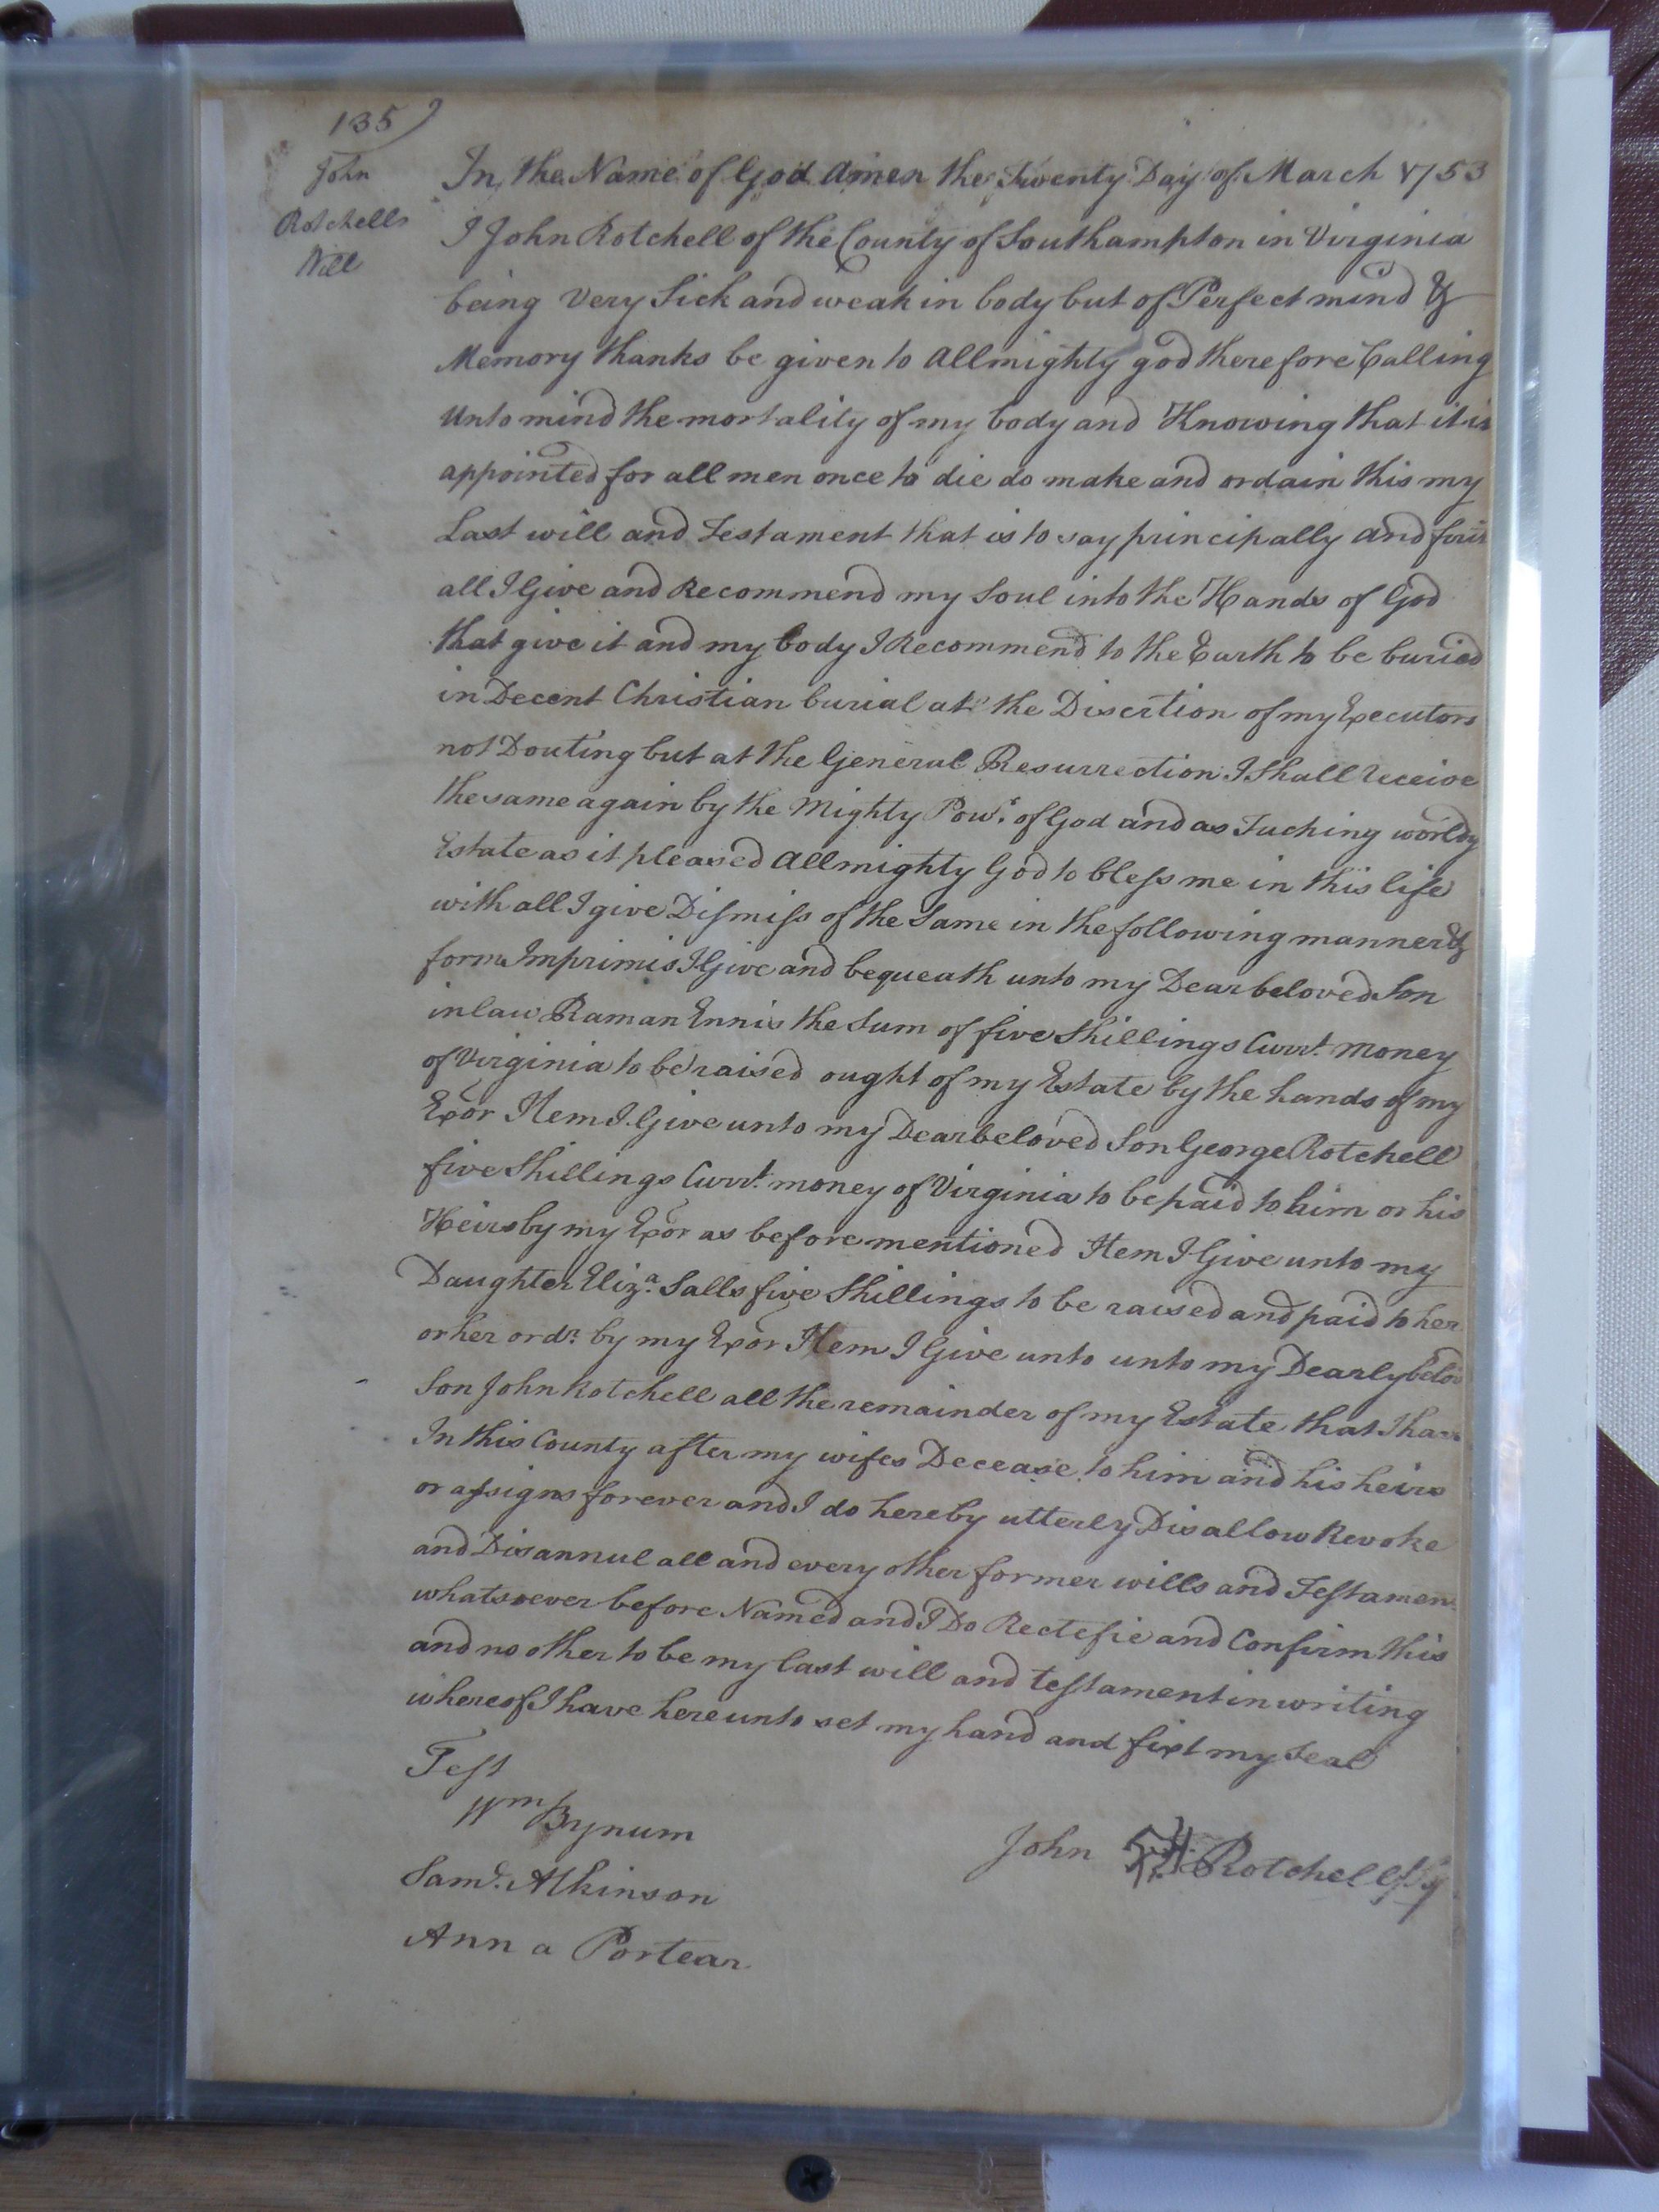 135
John
Rotchells
Will
In the Name of God Amen the Twenty Day of March 1753
I John Rotchell of the County of Southampton in Virginia
being Very Sick and weak in body but of Perfect mind &
Memory thanks be given to Allmighty god therefore Calling
Unto mind the mortality of my body and Knowing that it is
appointed for all men once to die do make and ordain this my
Last will and Testament that is to say principally and first
all I Give and Recommend my Soul into the Hands of God
that give it and my body I Recommend to the Earth to be buried
in Decent Christian burial at the Discrtion of my Executors
not Douting but at the General Resurrection I Shall receive
the same again by the Mighty Powr. of God and as Tuching worldy
Estate as it pleased Allmighty God to bless me in this life
with all I give Dismiss of the Same in the following manner &
form Imprimis I Give and bequeath unto my Dear beloved Son
in law Raman Ennis the Sum of five Shillings Currt. money
of Virginia to be raised ought of my Estate by the hands of my
Exor Item I Give unto my Dear beloved Son George Rotchell
five Shillings Currt. money of Virginia to be paid to him or his
Heirs by my Exor as before mentioned Item I Give unto my
Daughter Eliza. Salls five Shillings to be raised and paid to her
or her ordr. by my Exor Item I Give unto unto my Dearly belov
Son John Rotchell all the remainder of my Estate that I have
In this County after my wifes Decease to him and his heirs
or assigns forever and I do hereby utterly Disallow Revoke
and Disannul all and every other former wills and Testamen
whatsoever before Named and I Do Rectefie and Confirm this
and no other to be my last will and testament in writing
whereof I have hereunto set my hand and fixt my Seal
Test
Wm Bynum
John Rotchell
Saml. Atkinson
Ann a Portear